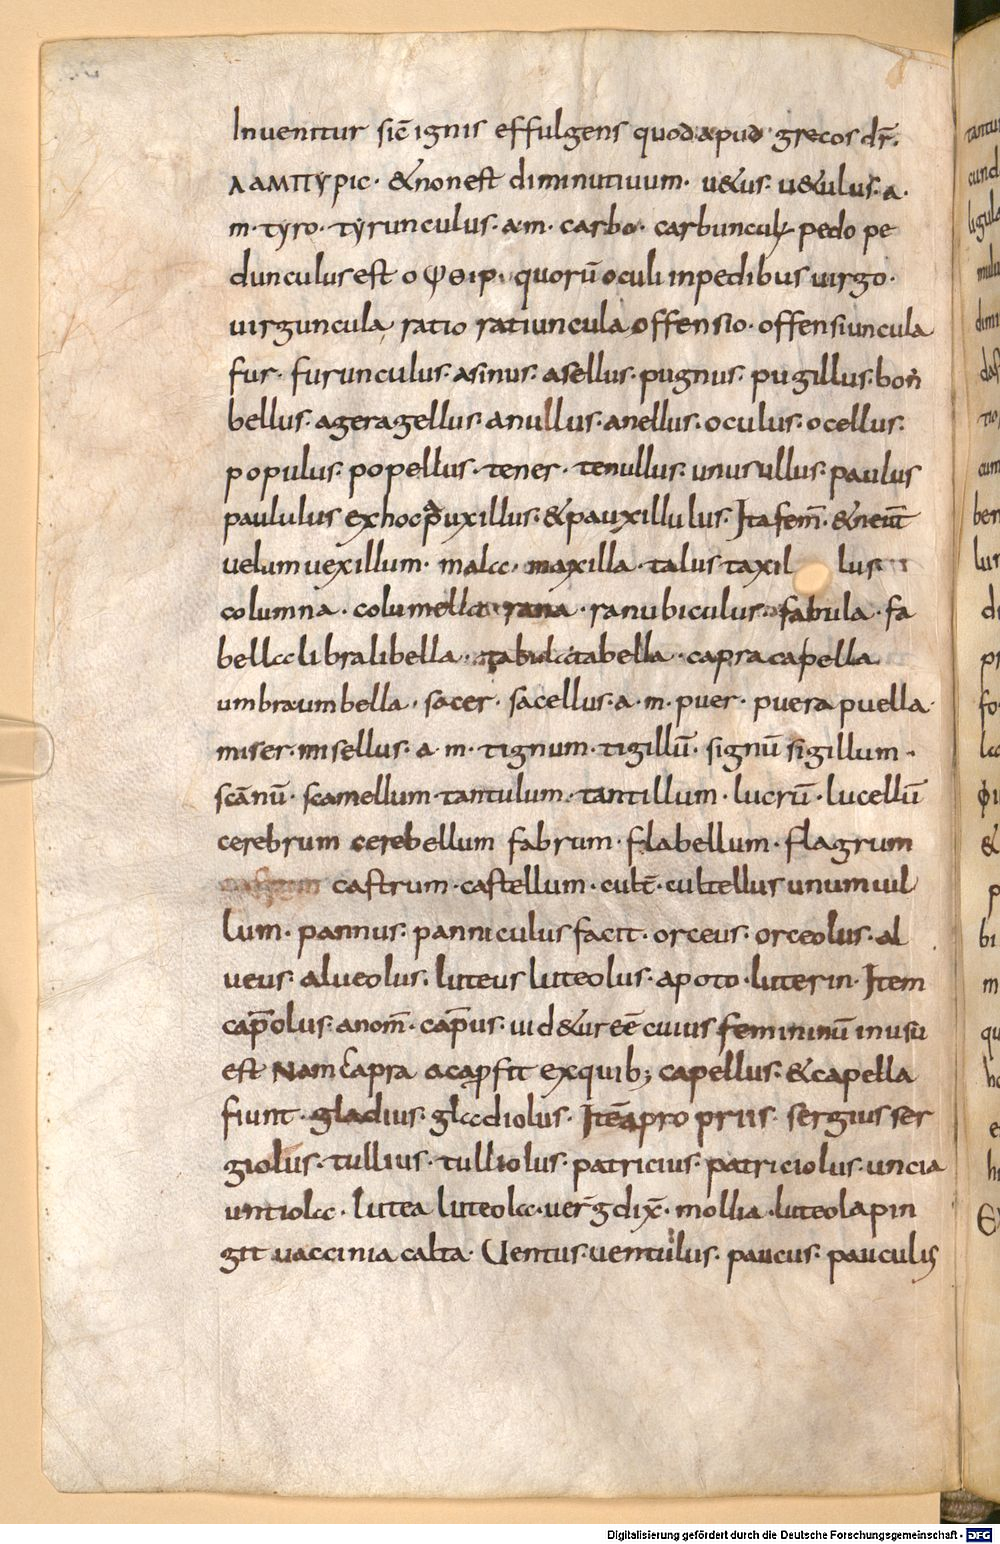 Inuenitur sic̄ ignis effulgens quod apud grecos dr̄.
λαΜΠΥΡΙC· &non est diminutiuum· u&us· u&ulus· a·
m· tyro· tyrunculus· a·m· carbo· carbuncul; pedo pe
dunculus est ο ΨΘΙΡ· quorū oculi inpedibus uirgo·
uirguncula, ratio ratiuncula offensio· offensiuncula
fur· furunculus· asinus· asellus· pugnus· pugillus· bon
bellus· ager agellus· anullus· anellus· oculus· ocellus·
populus· popellus· tener· tenullus· unus ullus· paulus
paululus exhoc pauxillus· &pauxillulus· Ita fem̄· &neut̄
uelum uexillum· mala· maxilla· talus taxil lus
columna· columella rana· ranubiculus· fabula· fa
bella libra libella· tabula tabella· capra capella
umbra umbella· sacer· sacellus· a· m· puer· puera puella·
miser· misellus· a m· tignum· tigillū· signū sigillum·
scānū· scamellum· tantulum· tantillum· lucrū· lucellū
cerebrum cerebellum fabrum· flabellum· flagrum
castrum· castellum· cult̄· cultellus unum uil
lum· pannus· panniculus facit· orceus· orceolus· al
ueus· alueolus· luteus luteolus· apoto· luterin· Item
cap̄olus· anom̄· cap̄us· uid&ur eē cuius femininū inusu
est Nam capra acap̄ fit exquib; capellus· &capella
fiunt· gladius· gladiolus· Itē apropriis· sergius ser
giolus· tullius· tulliolus· patricius· patriciolus· uncia
untiola· lutea luteola· uerḡ dix̄· mollia· luteola pin
git uaccinia calta· Uentus· uentulus· paucus· pauculis
Digitalisierung gefördert durch die Deutsche Forschungsgemeinschaft - DFG